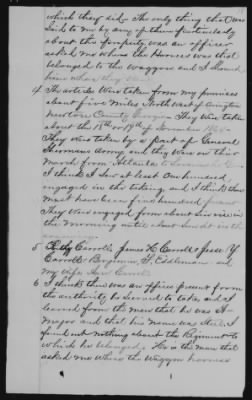 which they did. The only thing that was
said to me by any of them particularly
about this property was an officer
asked me where the Harness was that
belonged to the Waggons and I showed
him where they were
4 The articles were taken from my premises
about five miles North West of Covington
Newton County Georgia They were taken
about the 18th or 19th of November 1864
They were taken by a part of General
Shermans Army as they were on their
March from Atlanta to
I think I saw at least one hundred
engaged in the taking, and I think there
must have been five hundred present
They were engaged from about six in
the Morning until about Sundown the
5 Carroll James H. Carroll Jesse Y.
Carroll Benjamin F. Eddleman and
My wife Ann Carroll
6 I think there was an officer present from
the authority he seemed to take, and I
learned from the men that he was a
Major and that his name was I
found out nothing about the Regiment to
which he belonged. He is the man that
asked me where the Waggon harness